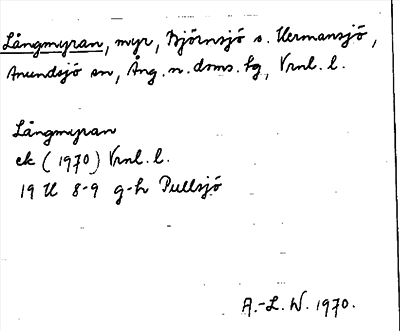 Långmyran, myr, Björnsjö s. Hermansjö,
Anundsjö sn, Ång. n. doms. hg, Vrnl. l.
Långmyran
ek (1970) Vrnl. l.
19 U 8-9 g-h Pullsjö
A.-L. W. 1970.